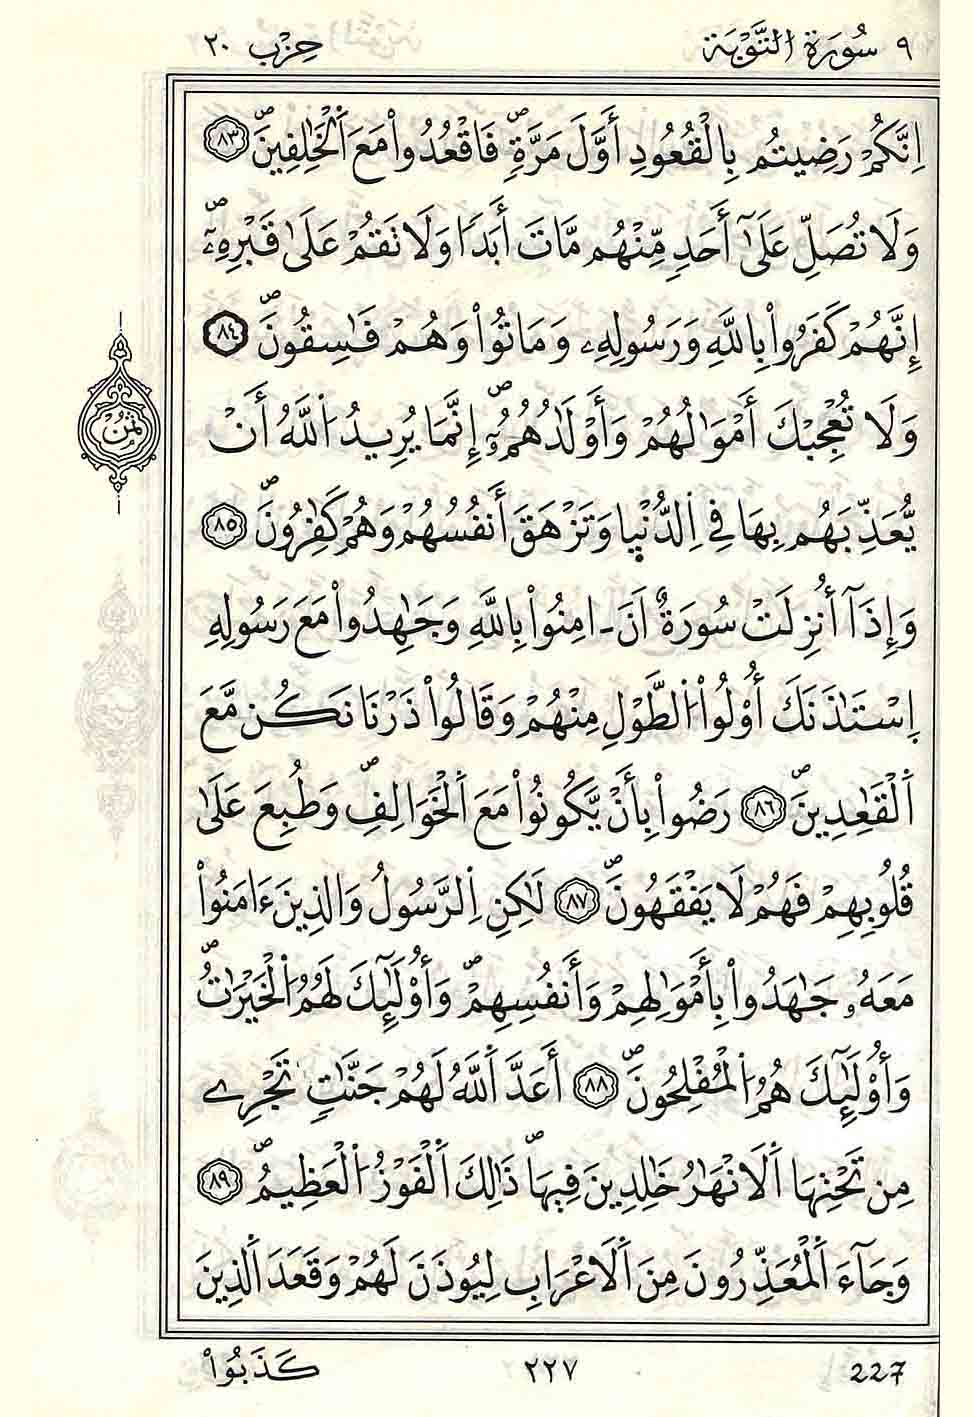 ٩ سُورَةُ التَّوْبَة حِزْب ٢٠
اِنَّكُمْ رَضِيتُم بِالْقُعُودِ أَوَّلَ مَرَّةٖۖ فَاقْعُدُواْ مَعَ اَ۬لْخَٰلِفِينَۖ ٨٣
وَلَا تُصَلِّ عَلَىٰٓ أَحَدٖ مِّنْهُم مَّاتَ أَبَداٗ وَلَا تَقُمْ عَلَىٰ قَبْرِهِۦٓۖ
إِنَّهُمْ كَفَرُواْ بِاللَّهِ وَرَسُولِهِۦ وَمَاتُواْ وَهُمْ فَٰسِقُونَۖ ٨٤
ثُمُن
وَلَا تُعْجِبْكَ أَمْوَٰلُهُمْ وَأَوْلَٰدُهُمُۥٓۖ إِنَّمَا يُرِيدُ اُ۬للَّهُ أَنْ
يُّعَذِّبَهُم بِهَا فِے اِ۬لدُّنْي۪ا وَتَزْهَقَ أَنفُسُهُمْ وَهُمْ كَٰفِرُونَۖ ٨٥
وَإِذَآ أُنزِلَتْ سُورَةٌ اَنَ اٰمِنُواْ بِاللَّهِ وَجَٰهِدُواْ مَعَ رَسُولِهِ
اِ۪سْتَٰذَنَكَ أُوْلُواْ اُ۬لطَّوْلِ مِنْهُمْ وَقَالُواْ ذَرْنَا نَكُن مَّعَ
اَ۬لْقَٰعِدِينَۖ ٨٦ رَضُواْ بِأَنْ يَّكُونُواْ مَعَ اَ۬لْخَوَالِفِۖ وَطُبِعَ عَلَىٰ
قُلُوبِهِمْ فَهُمْ لَا يَفْقَهُونَۖ ٨٧ لَٰكِنِ اِ۬لرَّسُولُ وَالذِينَ ءَامَنُواْ
مَعَهُۥ جَٰهَدُواْ بِأَمْوَٰلِهِمْ وَأَنفُسِهِمْۖ وَأُوْلَٰٓئِكَ لَهُمُ اُ۬لْخَيْرَٰتُۖ
وَأُوْلَٰٓئِكَ هُمُ اُ۬لْمُفْلِحُونَۖ ٨٨ أَعَدَّ اَ۬للَّهُ لَهُمْ جَنَّٰتٖ تَجْرِے
مِن تَحْتِهَا اَ۬لَانْهَٰرُ خَٰلِدِينَ فِيهَاۖ ذَٰلِكَ اَ۬لْفَوْزُ اُ۬لْعَظِيمُۖ ٨٩
وَجَآءَ اَ۬لْمُعَذِّرُونَ مِنَ اَ۬لَاعْرَابِ لِيُوذَنَ لَهُمْ وَقَعَدَ اَ۬لذِينَ
كَذَبُواْ ٢٢٧ 227